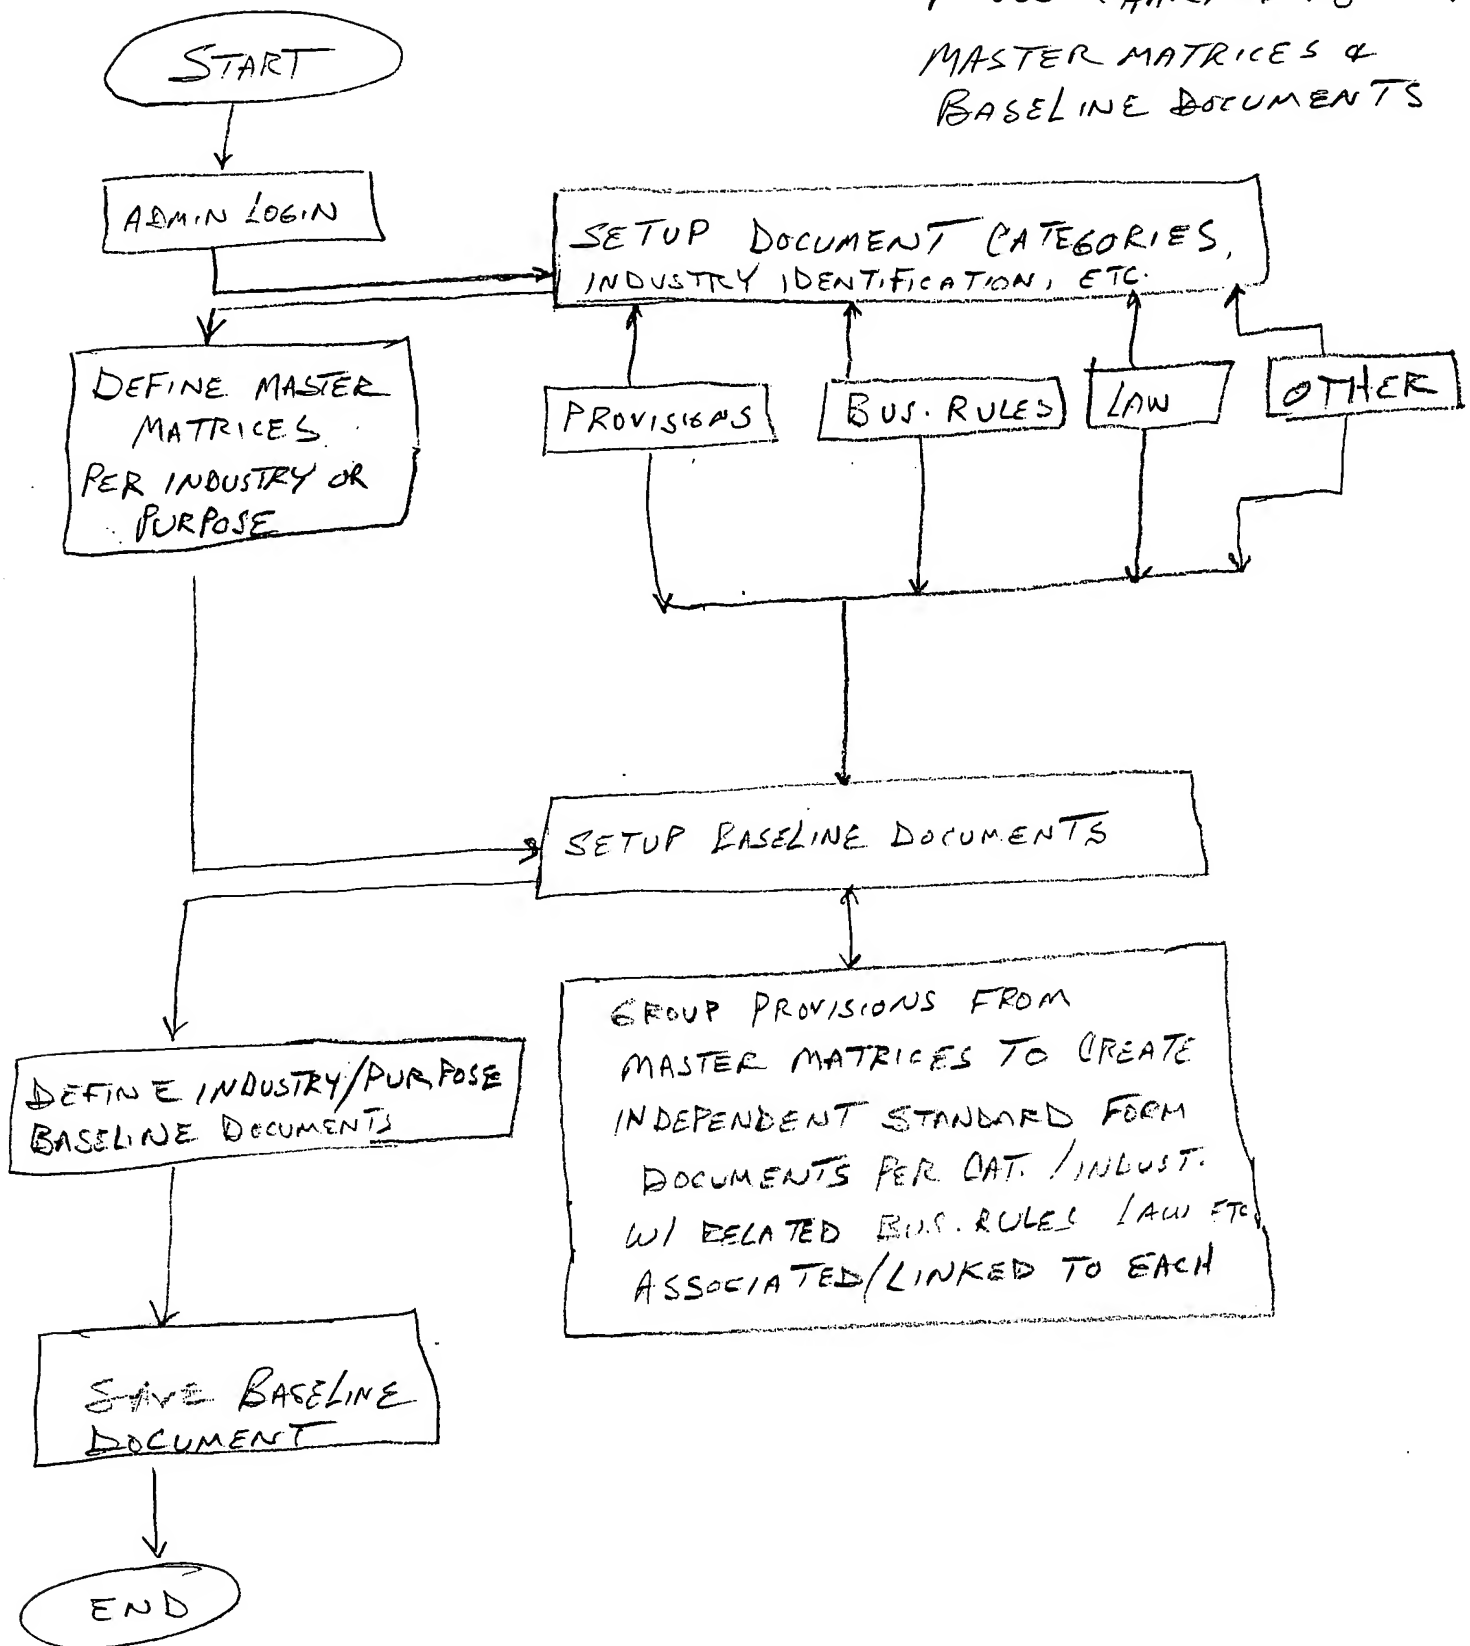 MASTER MATRICES &
BASELINE DOCUMENTS
START
ADMIN LOGIN
SETUP DOCUMENT CATEGORIES,
INDUSTRY IDENTIFICATION, ETC.
DEFINE MASTER
MATRICES
PER INDUSTRY OR
PURPOSE
PROVISIONS
BUS. RULES
LAW
OTHER
SETUP BASELINE DOCUMENTS
GROUP PROVISIONS FROM
MASTER MATRICES TO CREATE
INDEPENDENT STANDARD FORM
DOCUMENTS PER CAT. / INDUST.
W/ RELATED BUS. RULES LAW ETC.
ASSOCIATED/LINKED TO EACH
DEFINE INDUSTRY/PURPOSE
BASELINE DOCUMENTS
SAVE BASELINE
DOCUMENT
END